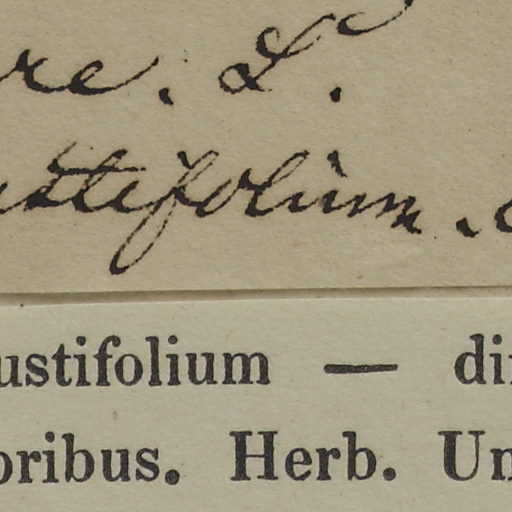 re. L.
ustifolium.
ustifolium — di
oribus. Herb. Un